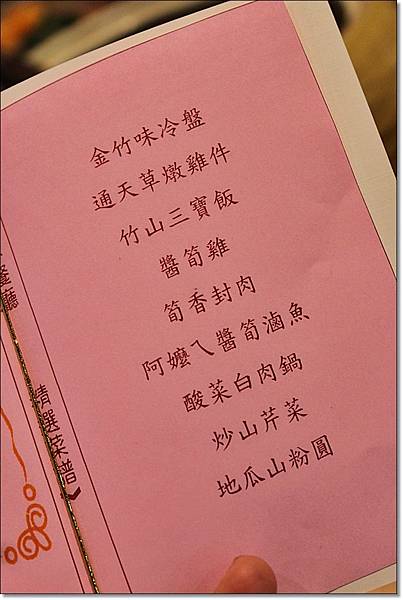 金竹味冷盤
通天草燉雞件
竹山三寶飯
醬筍雞
筍香封肉
阿嬤ㄟ醬筍滷魚
酸菜白肉鍋
炒山芹菜
地瓜山粉圓
餐廳
精選菜譜